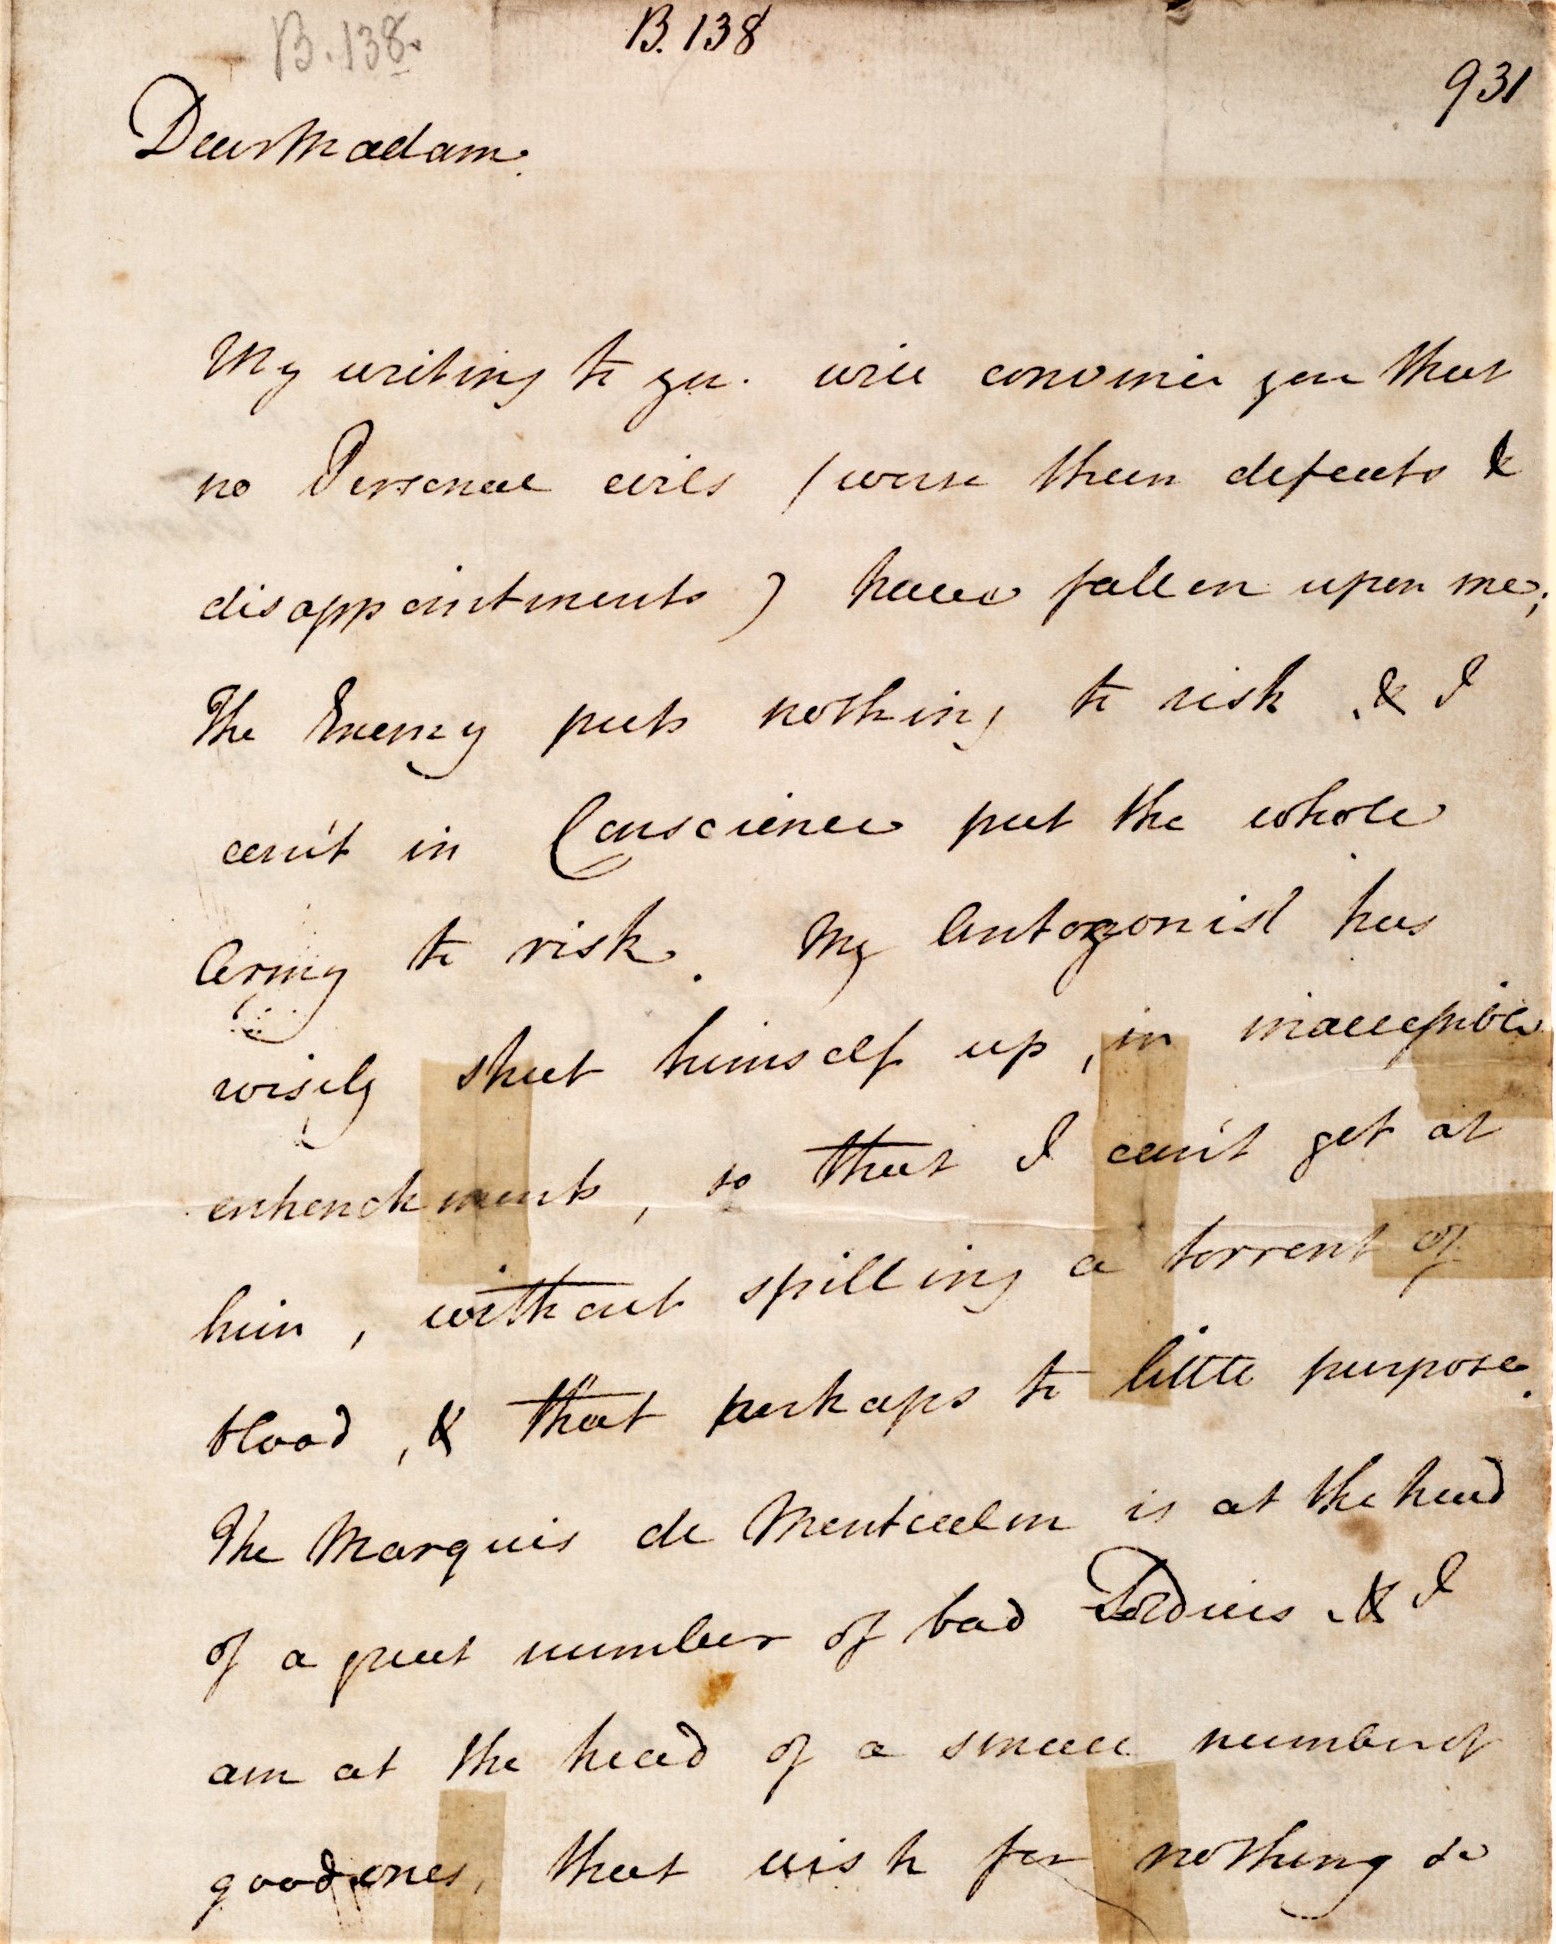 B.138.
B. 138
931
Dear Madam.
My writing to you. will convince you that
no Personal evils (worse than defeats &
disappointments) have fallen upon me;
The Enemy puts nothing to risk, & I
can't in Conscience put the whole
Army to risk. My Antagonist has
wisely shut himself up, in inaccessible
entrenchments, so that I can't get at
him, without spilling a torrent of
blood, & that perhaps to little purpose.
The Marquis de Montcalm is at the head
of a great number of bad Soldiers, & I
am at the head of a small number of
good ones, that wish for nothing so